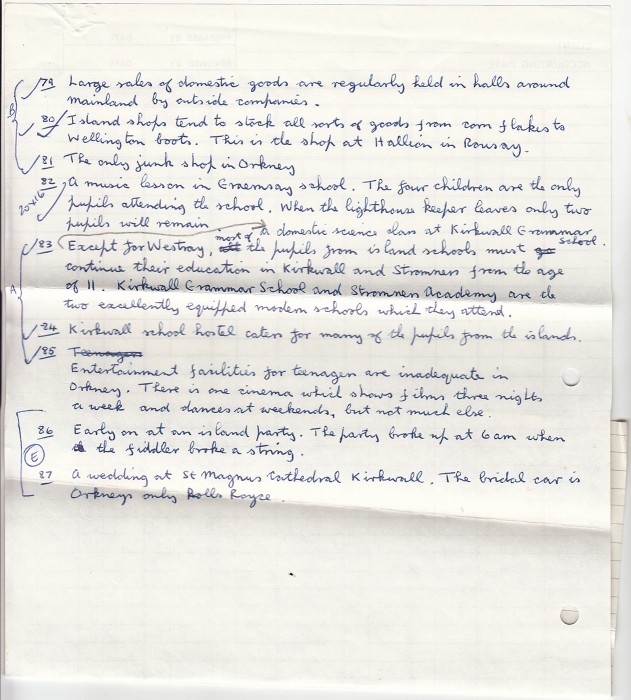 79 Large sales of domestic goods are regularly held in halls around
mainland by outside companies.
B
80 Island shops tend to stock all sorts of goods from corn flakes to
Wellington boots. This is the shop at Hallion in Rousay.
81 The only junk shop in Orkney
82 A music lesson in Graemsay school. The four children are the only
20x16
pupils attending the school. When the lighthouse keeper leaves only two
pupils will remain. A domestic science class at Kirkwall Grammar
school.
83 Except for Westray, most of the pupils from island schools must go
continue their education in Kirkwall and Stromness from the age
A
of 11. Kirkwall Grammar School and Stromness Academy are the
two excellently equipped modern schools which they attend.
84 Kirkwall school hostel caters for many of the pupils from the islands.
85 Teenagers
Entertainment facilities for teenagers are inadequate in
Orkney. There is one cinema which shows films three nights
a week and dances at weekends, but not much else.
86 Early on at an island party. The party broke up at 6am when
E
the fiddler broke a string.
87 A wedding at St Magnus Cathedral Kirkwall. The bridal car is
Orkneys only Rolls Royce.